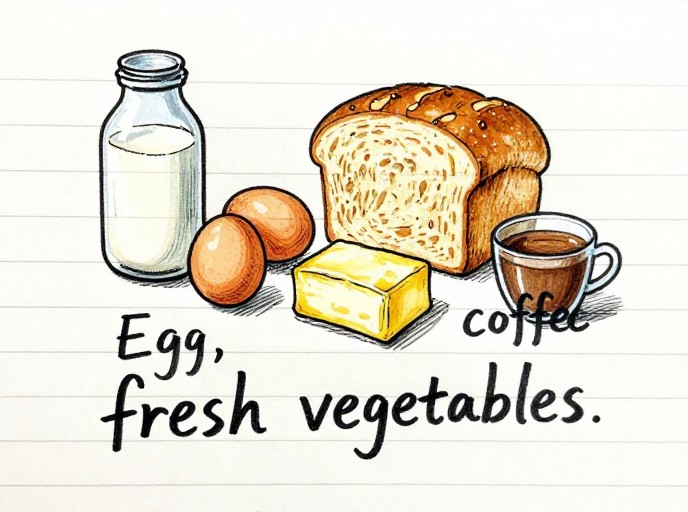 coffee
Egg,
fresh vegetables.